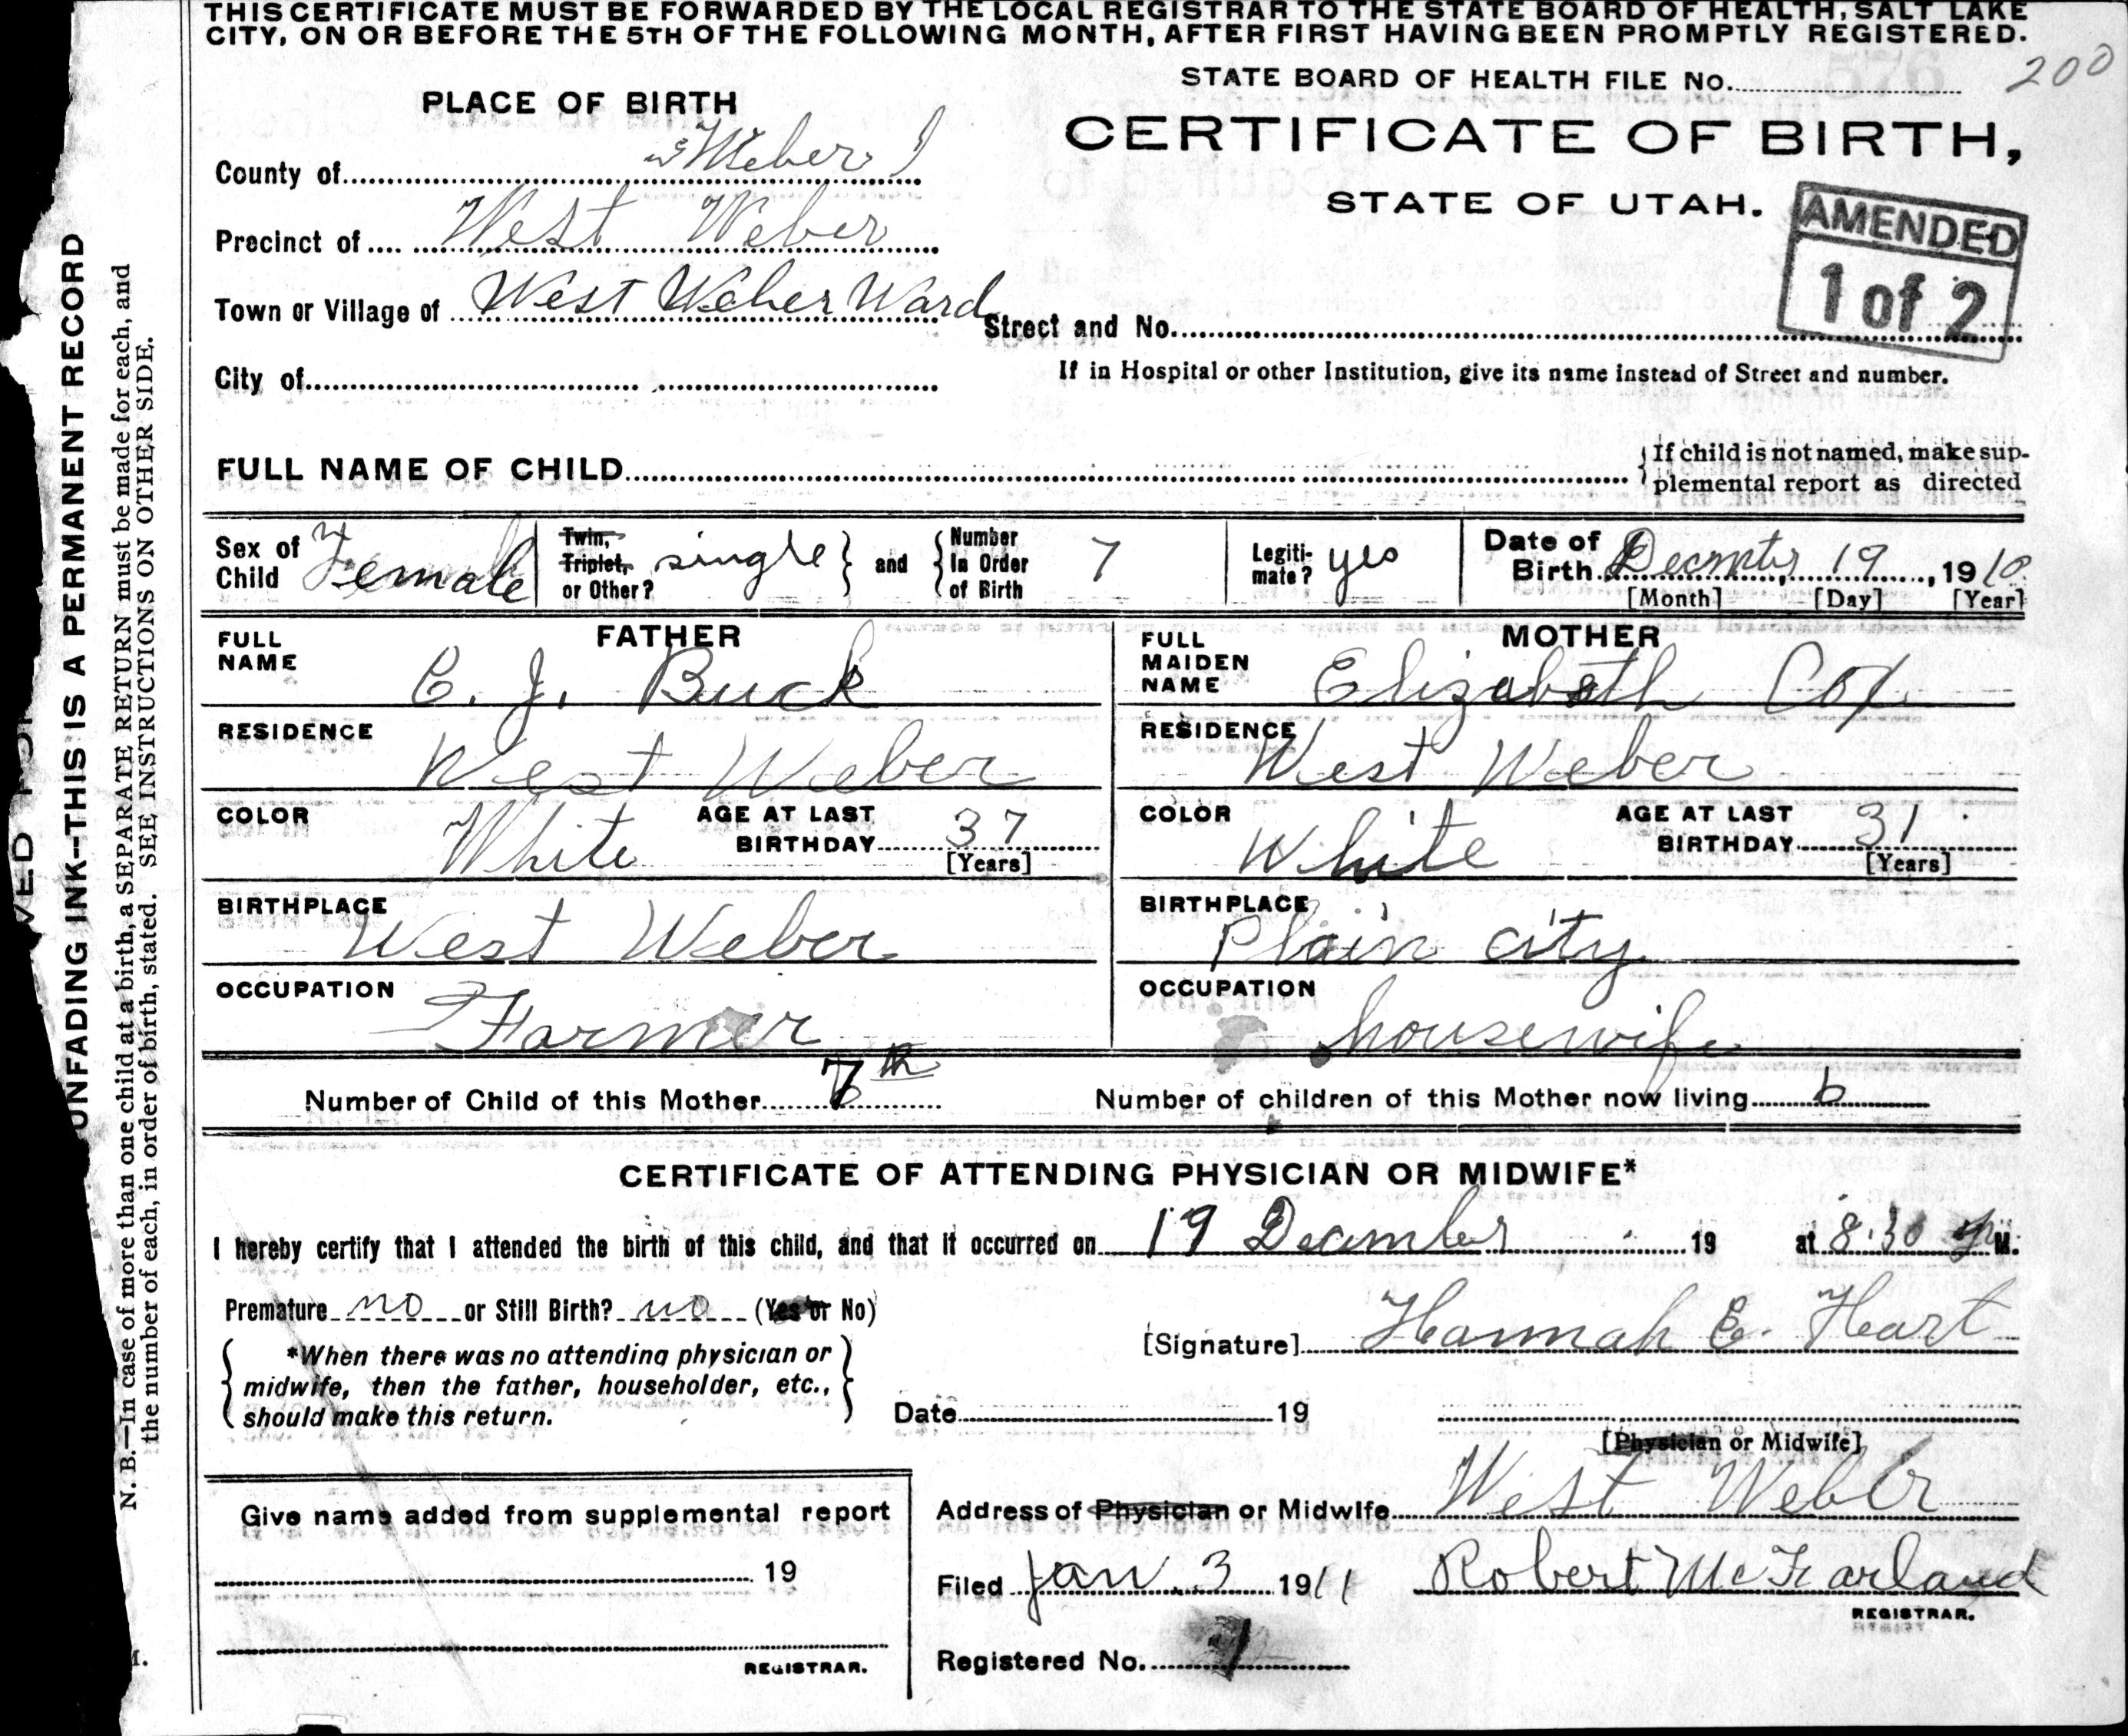 THIS CERTIFICATE MUST BE FORWARDED BY THE LOCAL REGISTRAR TO THE STATE BOARD OF HEALTH, SALT LAKE
CITY, ON OR BEFORE THE 5TH OF THE FOLLOWING MONTH, AFTER FIRST HAVING BEEN PROMPTLY REGISTERED.
STATE BOARD OF HEALTH FILE No. 200
PLACE OF BIRTH
CERTIFICATE OF BIRTH,
STATE OF UTAH.
AMENDED
1 of 2
County of Weber
Precinct of West Weber
Town or Village of West Weber Ward
Street and No.
City of
If in Hospital or other Institution, give its name instead of Street and number.
FULL NAME OF CHILD
If child is not named, make sup-
plemental report as directed
Sex of Child Female
Twin, Triplet, or Other? single
and Number In Order of Birth 7
Legiti-mate? yes
Date of Birth Decmber 19, 1910
[Month] [Day] [Year]
FATHER
FULL NAME C. J. Buck
RESIDENCE West Weber
COLOR White AGE AT LAST BIRTHDAY 37 [Years]
BIRTHPLACE West Weber
OCCUPATION Farmer
MOTHER
FULL MAIDEN NAME Elizabeth Cox
RESIDENCE West Weber
COLOR White AGE AT LAST BIRTHDAY 31 [Years]
BIRTHPLACE Plain city
OCCUPATION housewife
Number of Child of this Mother 7th
Number of children of this Mother now living 6
CERTIFICATE OF ATTENDING PHYSICIAN OR MIDWIFE*
I hereby certify that I attended the birth of this child, and that it occurred on 19 December 19 at 8:30 M.
Premature no or Still Birth? no (Yes or No)
[Signature] Hannah E. Heart
*When there was no attending physician or
midwife, then the father, householder, etc.,
should make this return.
Date 19
[Physician or Midwife]
Give name added from supplemental report
19
REGISTRAR.
Address of Physician or Midwife West Weber
Filed Jan. 3 1911 Robert McFarland
REGISTRAR.
Registered No. 1
UNFADING INK--THIS IS A PERMANENT RECORD
N. B.—In case of more than one child at a birth, a SEPARATE RETURN must be made for each, and
the number of each, in order of birth, stated. SEE INSTRUCTIONS ON OTHER SIDE.